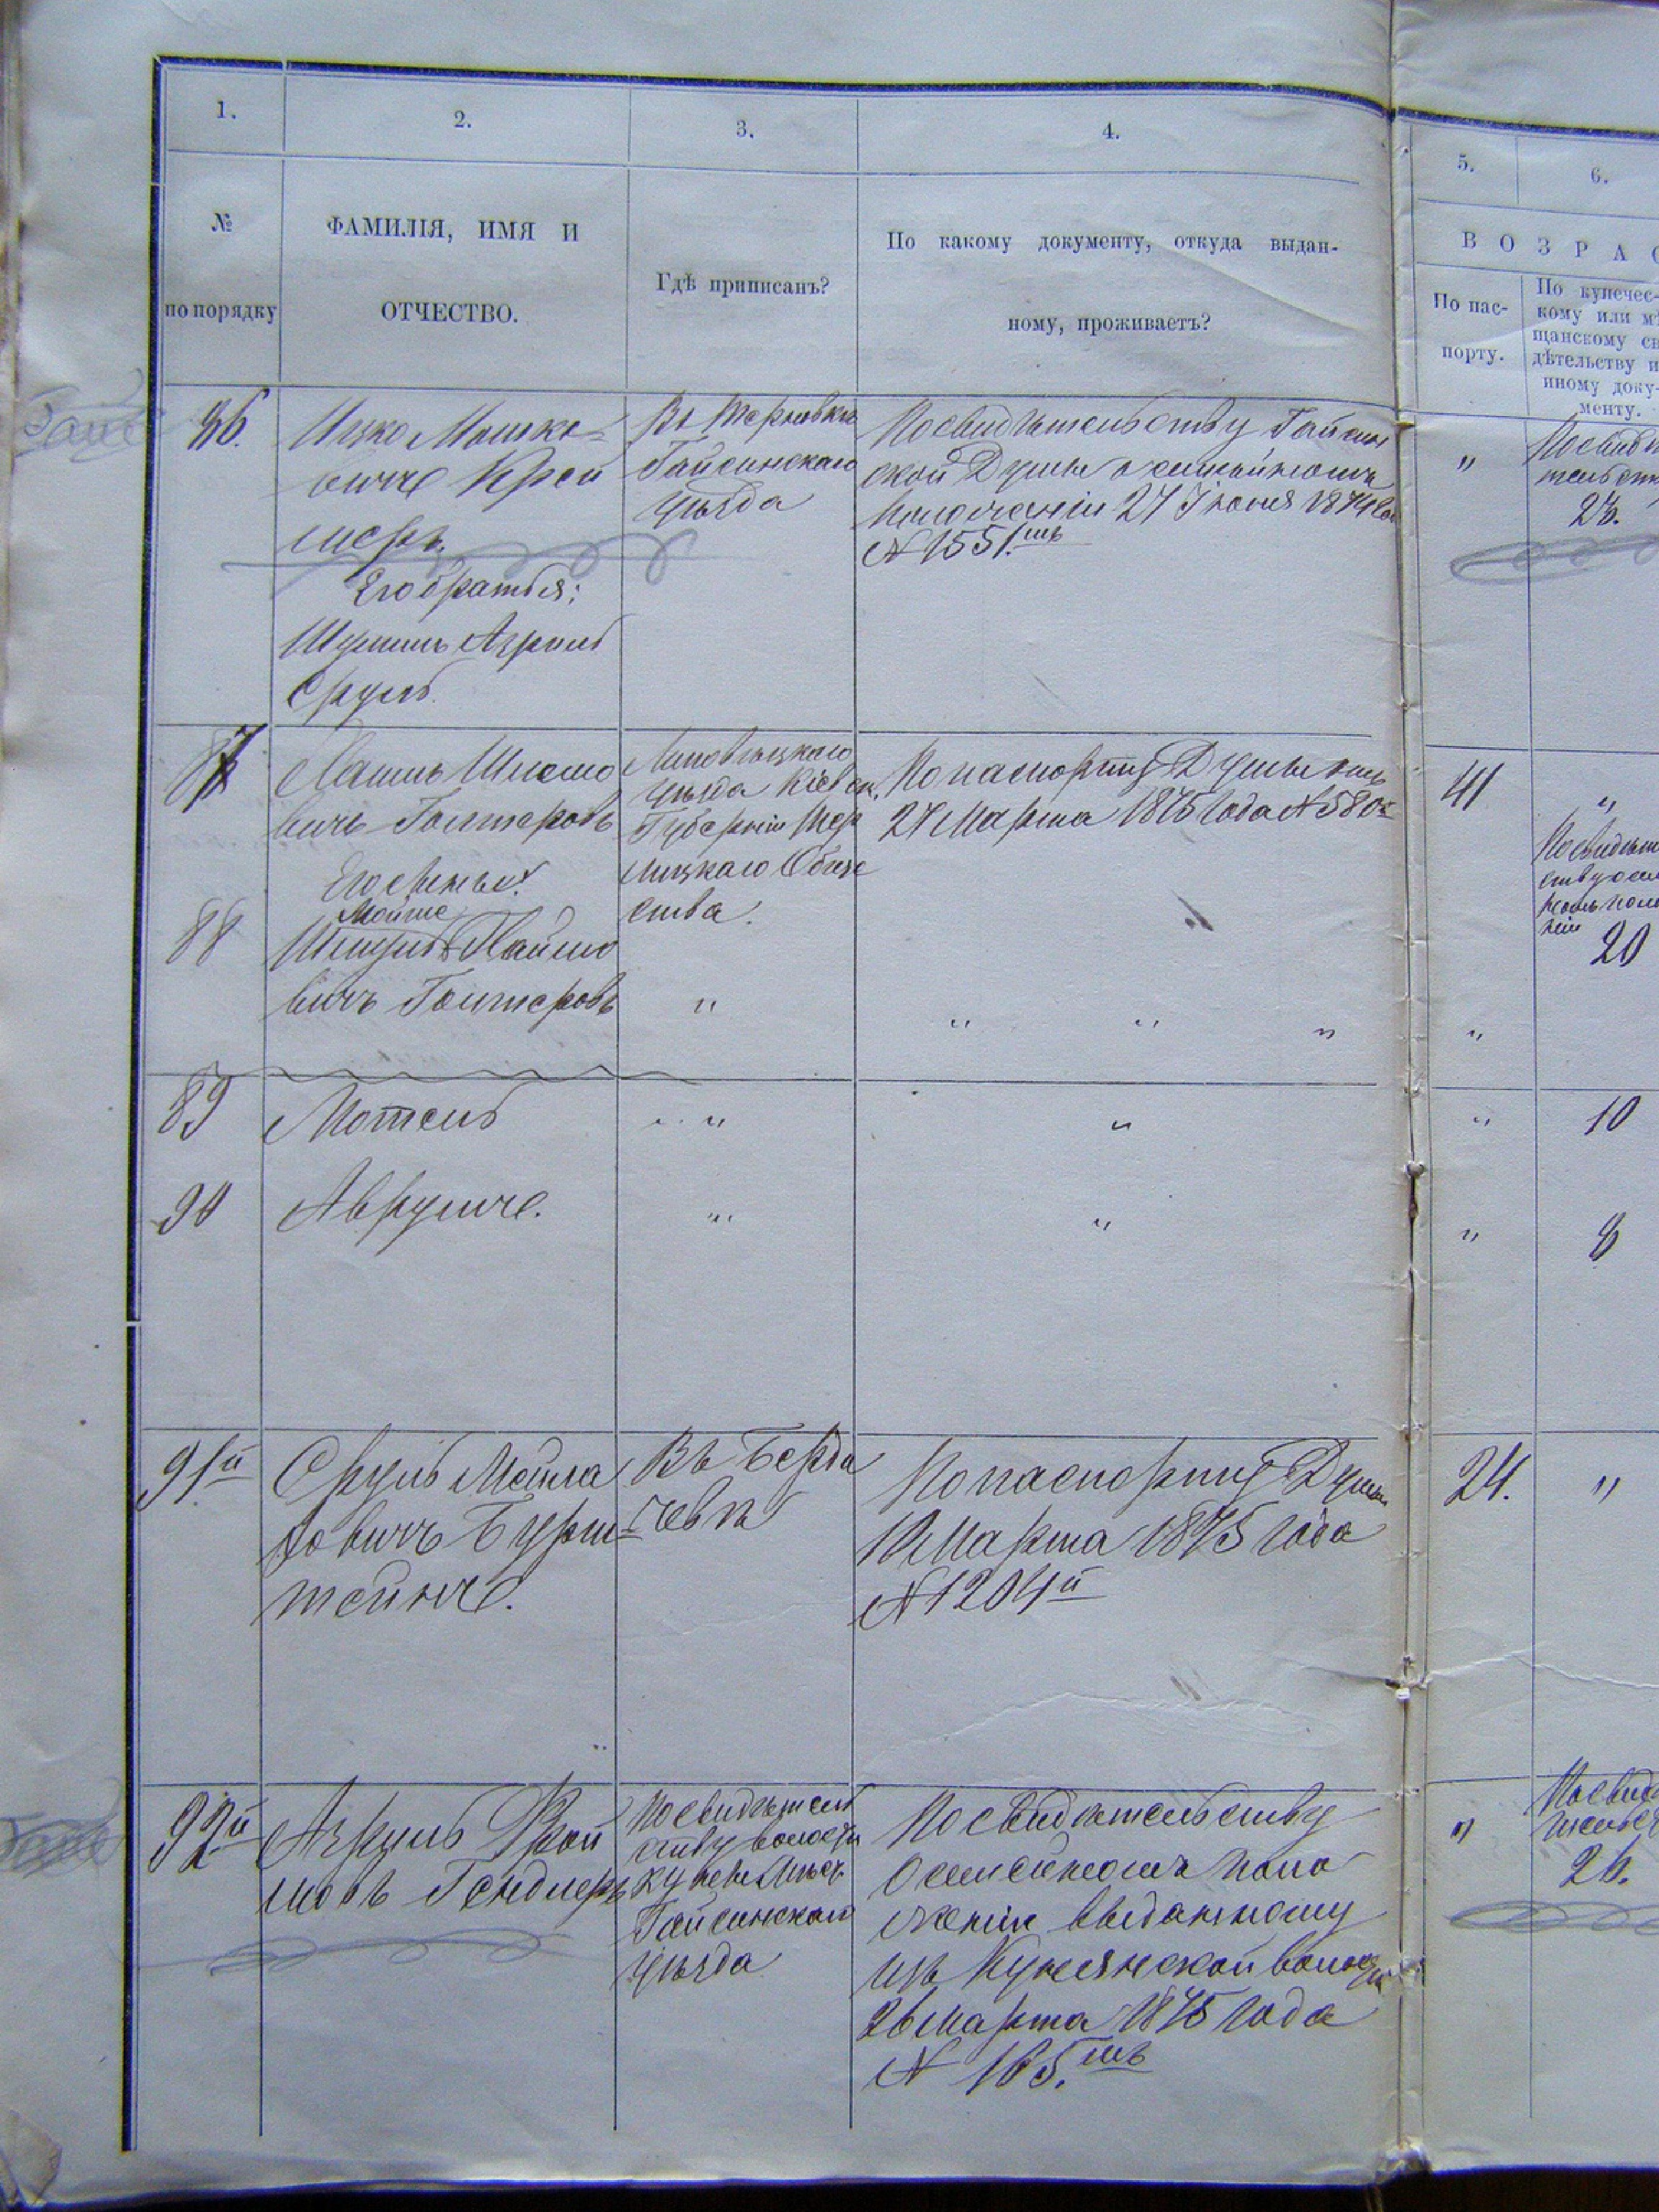 1.
2.
3.
4.
5.
6.
№
по порядку
ФАМИЛІЯ, ИМЯ И
ОТЧЕСТВО.
Гдѣ приписанъ?
По какому документу, откуда выдан-
ному, проживаетъ?
ВОЗРАС
По пас-
порту.
По купечес-
кому или мѣ
щанскому св
дѣтельству и
иному доку-
менту.
86.
Ицко Мошко-
вичъ Крей
меръ.
Его братья:
Шулимъ Азриль
Сруль.
Въ Терновкѣ
Гайсинскаго
уѣзда
По свидѣтельству Гайсин
ской Думы о семейномъ
положеніи 27 Іюня 1874 го
№ 1551.мъ
"
По свидѣ
тельств
26.
87
Хаимъ Шлемо
вичъ Голтеровъ
Его сынъ
Липовецкаго
уѣзда Кіевск.
Губерніи
лицкаго Обще
ства.
По паспорту Думы
27 Марта 1875 года № 580
41
"
88
Мойше
Шмуль Хаимо
вичъ Голтеровъ
"
" " "
"
По свидѣт
ству о сем
номъ поло
ніи
20
89
Мотель
"
"
"
10
90
Аврумъ.
"
"
"
8
91й
Сруль Мейла
ховичъ Бурш-
тейнъ.
Въ Берди
чевѣ
По паспорту Думы
Марта 1875 года
№ 1204й
24.
"
92й
Азриль Фрой
мовъ Гендлеръ
По свидѣтель
ству волости
Гайсинскаго
уѣзда
По свидѣтельству
о семейномъ поло
женіи выданному
изъ Кунянской волости
26 Марта 1875 года
№ 165.мъ
"
По свидѣ
тельст
26.